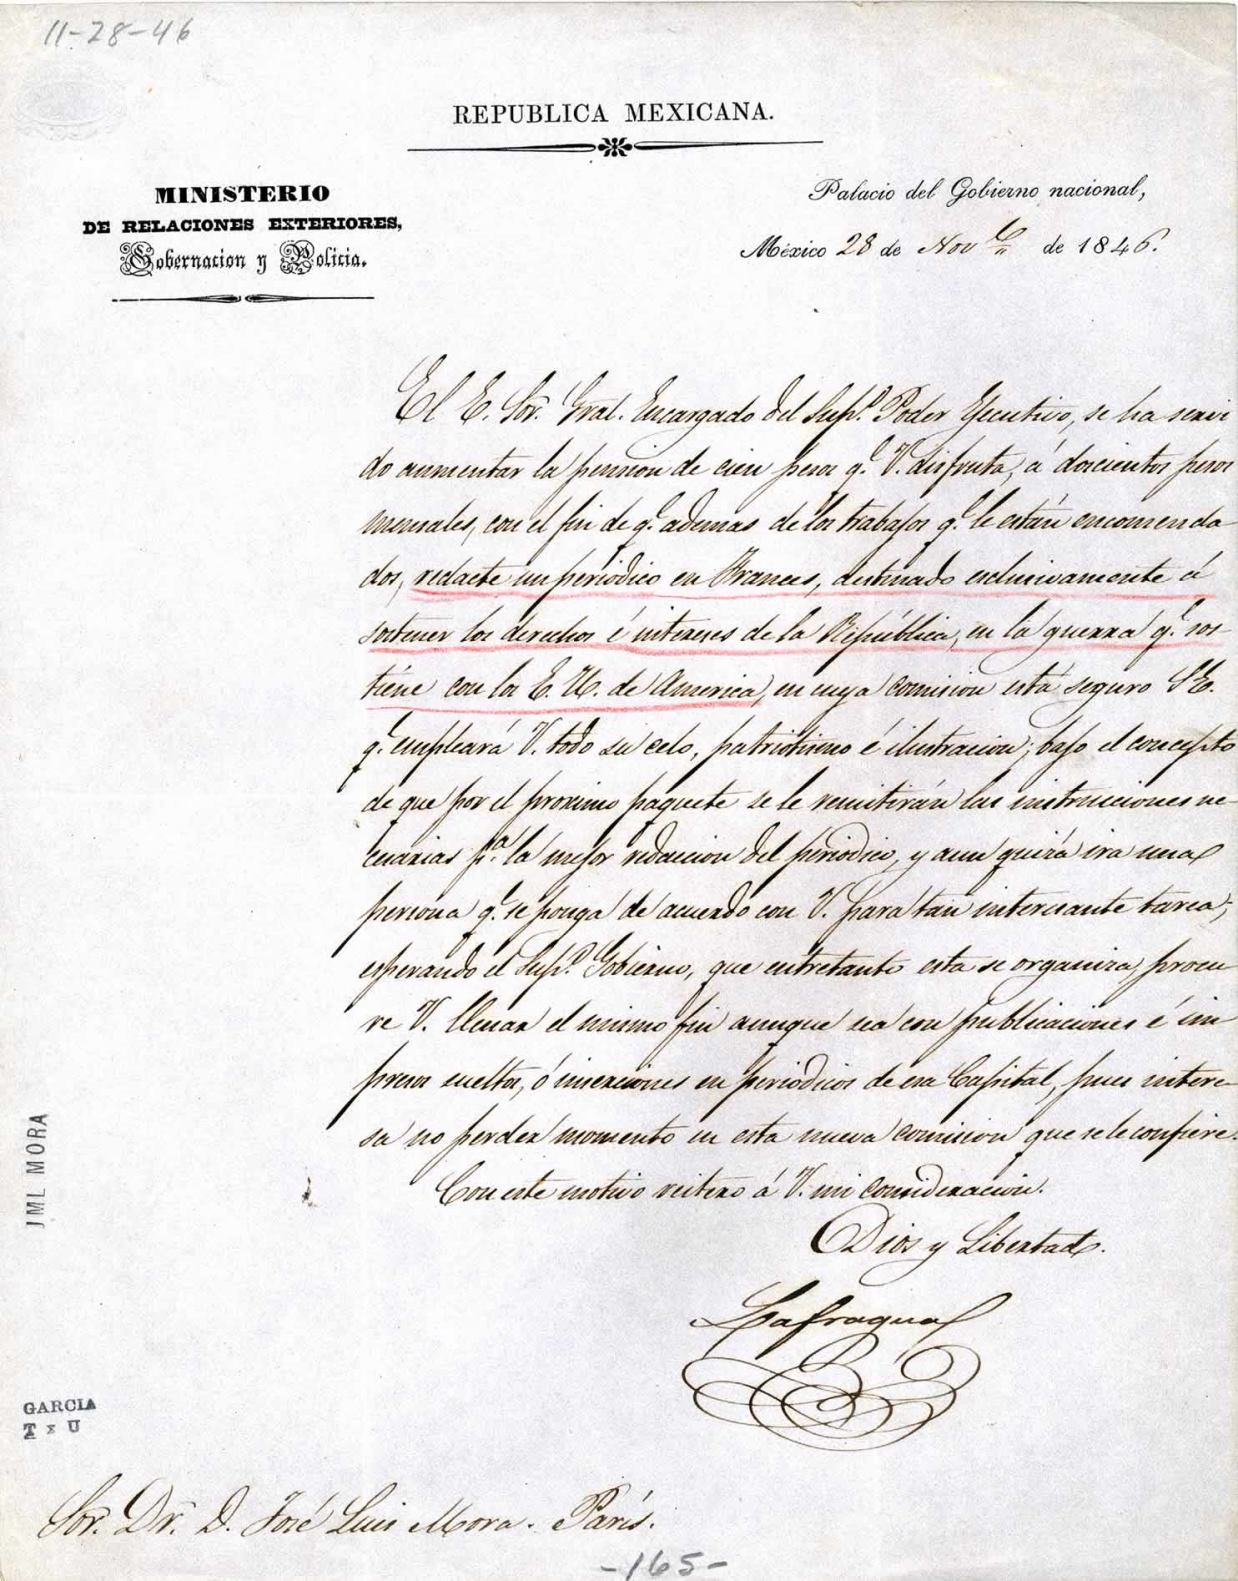 11-28-46
REPUBLICA MEXICANA.
MINISTERIO
DE RELACIONES EXTERIORES,
Gobernacion y Policia.
Palacio del Gobierno nacional,
México 28 de Nov.e de 1846.
El E. Sor. Gral. Encargado del Sup.o Poder Ejecutivo, se ha servi
do aumentar la pension de cien pesos q.e V. disfruta, á doscientos pesos
mensales, con el fin de q.e ademas de los trabajos q.e le están encomenda
dos, redacte un periódico en Frances, destinado esclusivamente á
sostener los derechos é intereses de la República, en la guerra q.e sos-
tiene con los E. U. de America, en cuya comision está seguro S.E.
q.e empleará V. todo su celo, patriotismo é ilustracion; bajo el concepto
de que por el proximo paquete se le remitirán las instrucciones ne-
cesarias p.a la mejor redaccion del periodico, y aun quizá ira una
persona q.e se ponga de acuerdo con V. para tan interesante tarea;
esperando el Sup.o Gobierno, que entretanto esta se organiza, procu-
re V. llenar el mismo fin aunque sea con publicaciones é im
presos sueltos, ó inserciones en periódicos de esa Capital, pues intere-
sa no perder momento en esta nueva comision que se le confiere.
Con este motivo reitero á V. mi consideracion.
Dios y Libertad.
Lafragua
JML MORA
GARCIA
T x U
Sor. Dr. D. José Luis Mora. París.
-165-